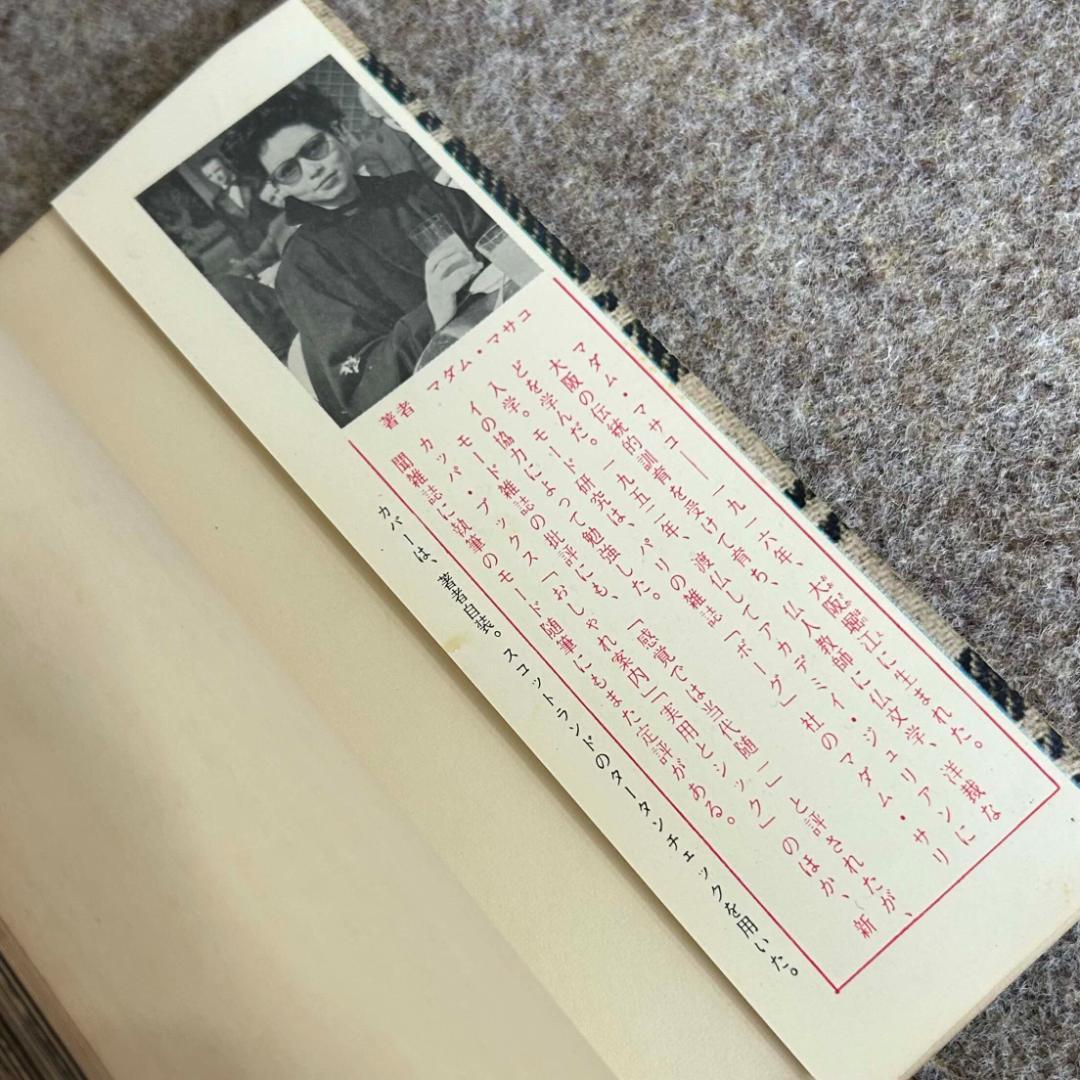 著者 マダム・マサコ
マダム・マサコ―一九一六年、大阪堀江に生まれた。
大阪の伝統的訓育を受けて育ち、仏人教師に仏文学、洋裁な
どを学んだ。一九五二年、渡仏してアカデミイ・ジュリアンに
入学。モード研究は、パリの雑誌「ボーグ」社のマダム・サリ
イの協力によって勉強した。
モード雑誌の批評にも、「感覚では当代随一」と評されたが、
カッパ・ブックス「おしゃれ案内」「実用とシック」のほか、新
聞雑誌に執筆のモード随筆にもまた定評がある。
カバーは、著者自装。スコットランドのタータンチェックを用いた。